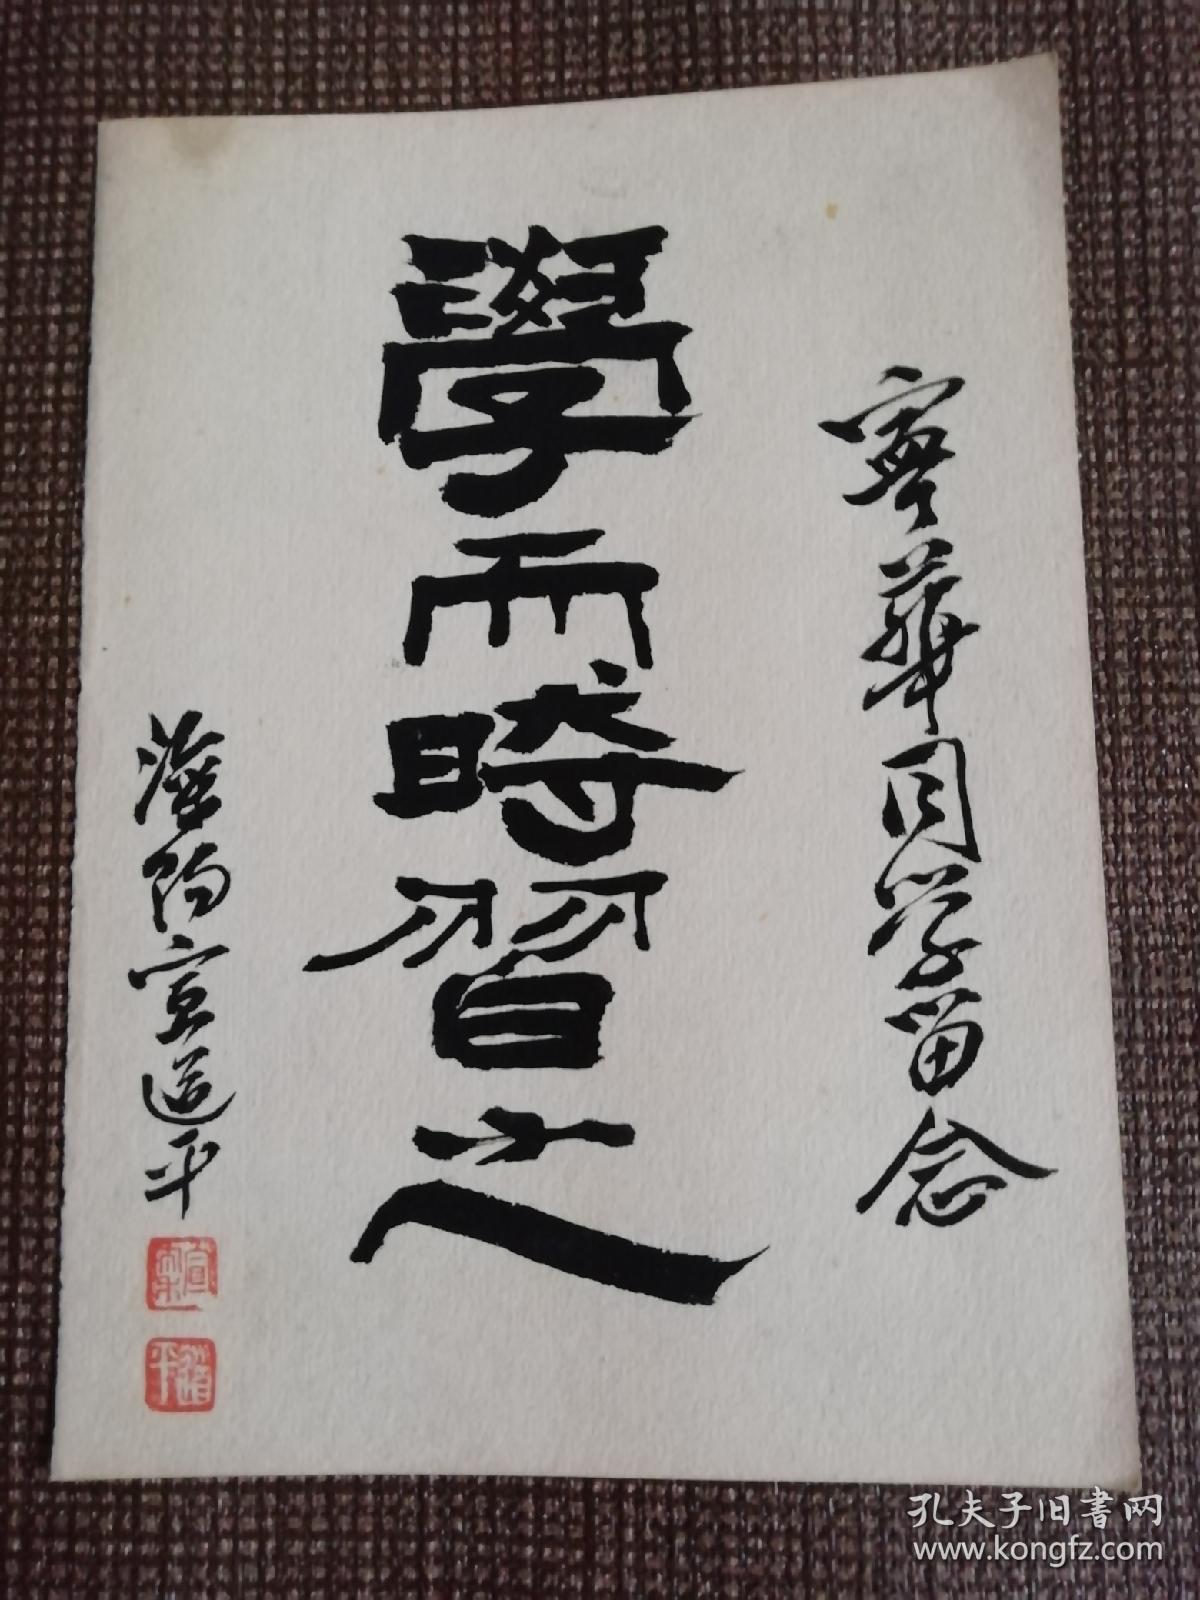 寧華同学留念
學而時習之
滏陽宣道平
宣
道平
孔夫子旧書网
www.kongfz.com